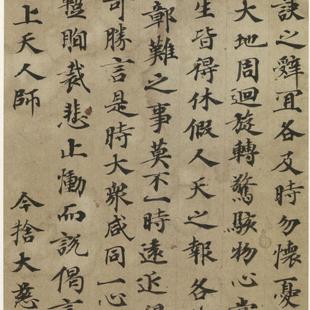 訣之辭宜各及時勿懷憂
大地周迴旋轉驚駭物心
生皆得休假人天之報各
鄣難之事莫不一時遠近
可勝言是時大衆咸同一心
胸裁悲止慟而說偈言
上天人師　今捨大慈